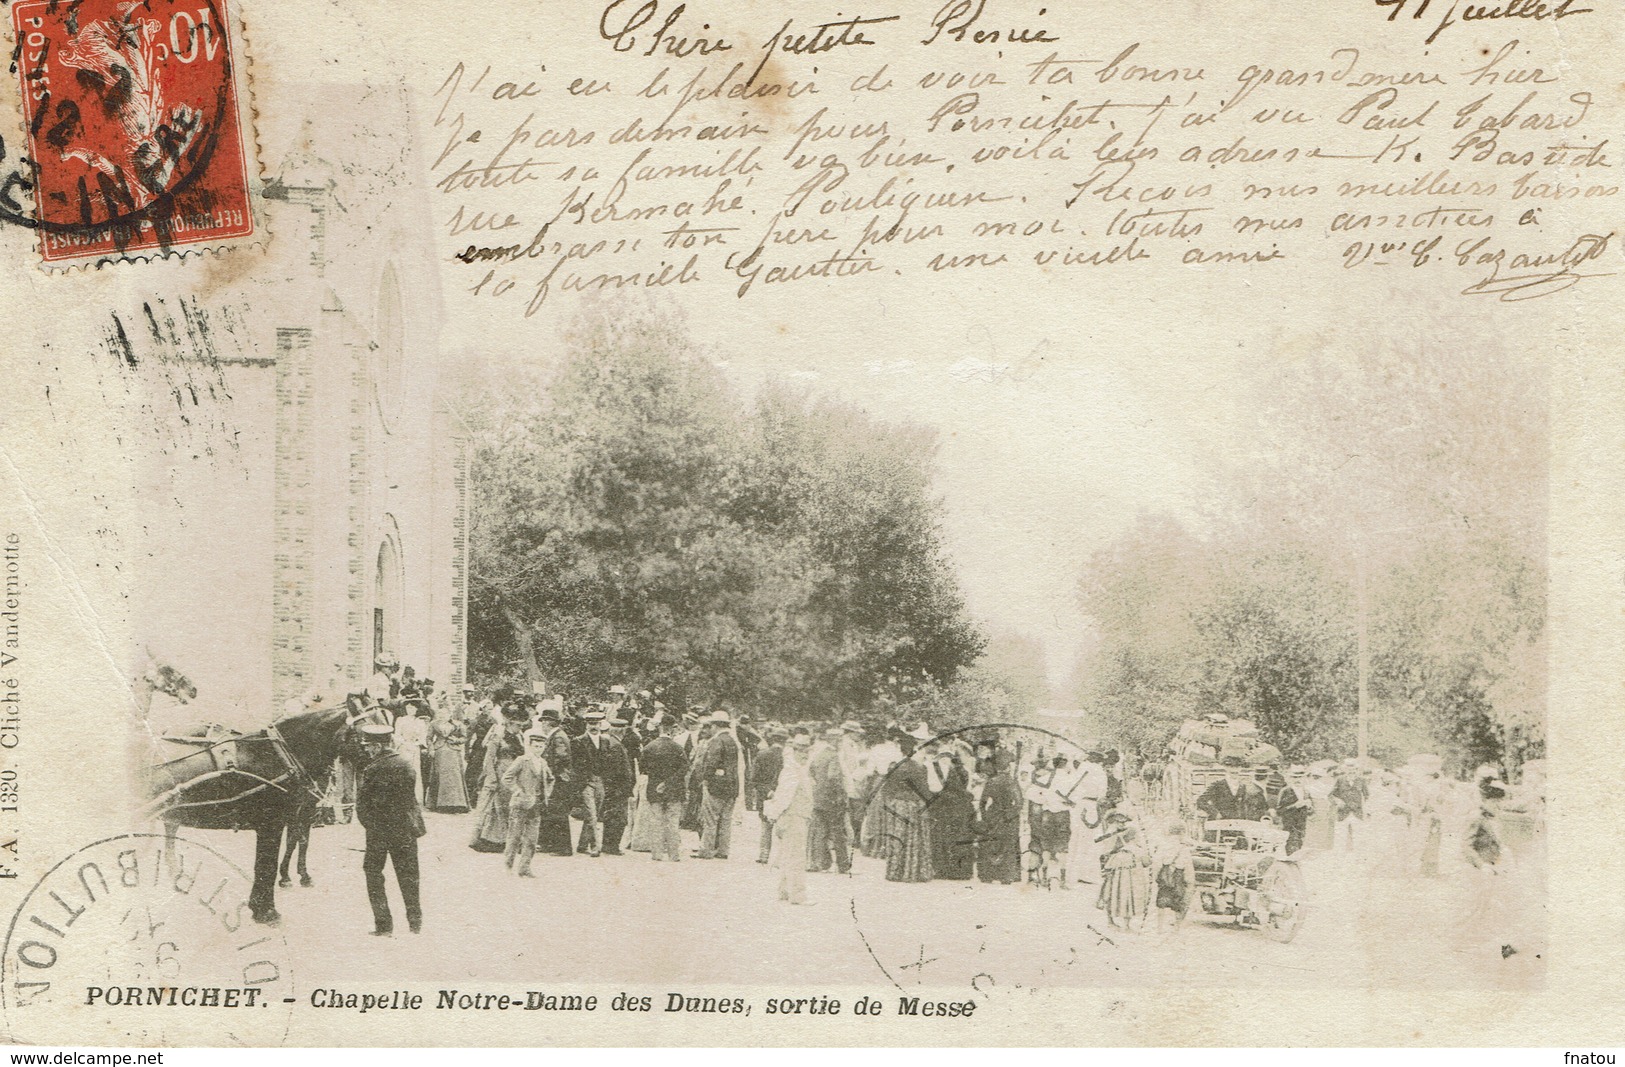 11 juillet
Chère petite Renée
J'ai eu le plaisir de voir ta bonne grand mère hier
Je pars demain pour Pornichet. J'ai vu Paul Tabard
toute sa famille va bien. voilà leur adresse K. Bastide
rue Kermahé. Pouliguen. Reçois mes meilleurs baisers
embrasse ton père pour moi. toutes mes amitiées à
la famille Gautier. une vieille amie Vve C. Cazault
10c
POSTES
REPUBLIQUE FRANÇAISE
INFRE
DISTRIBUTION
F. A. 1320. Cliché Vandernotte
PORNICHET. - Chapelle Notre-Dame des Dunes, sortie de Messe
www.delcampe.net
fnatou